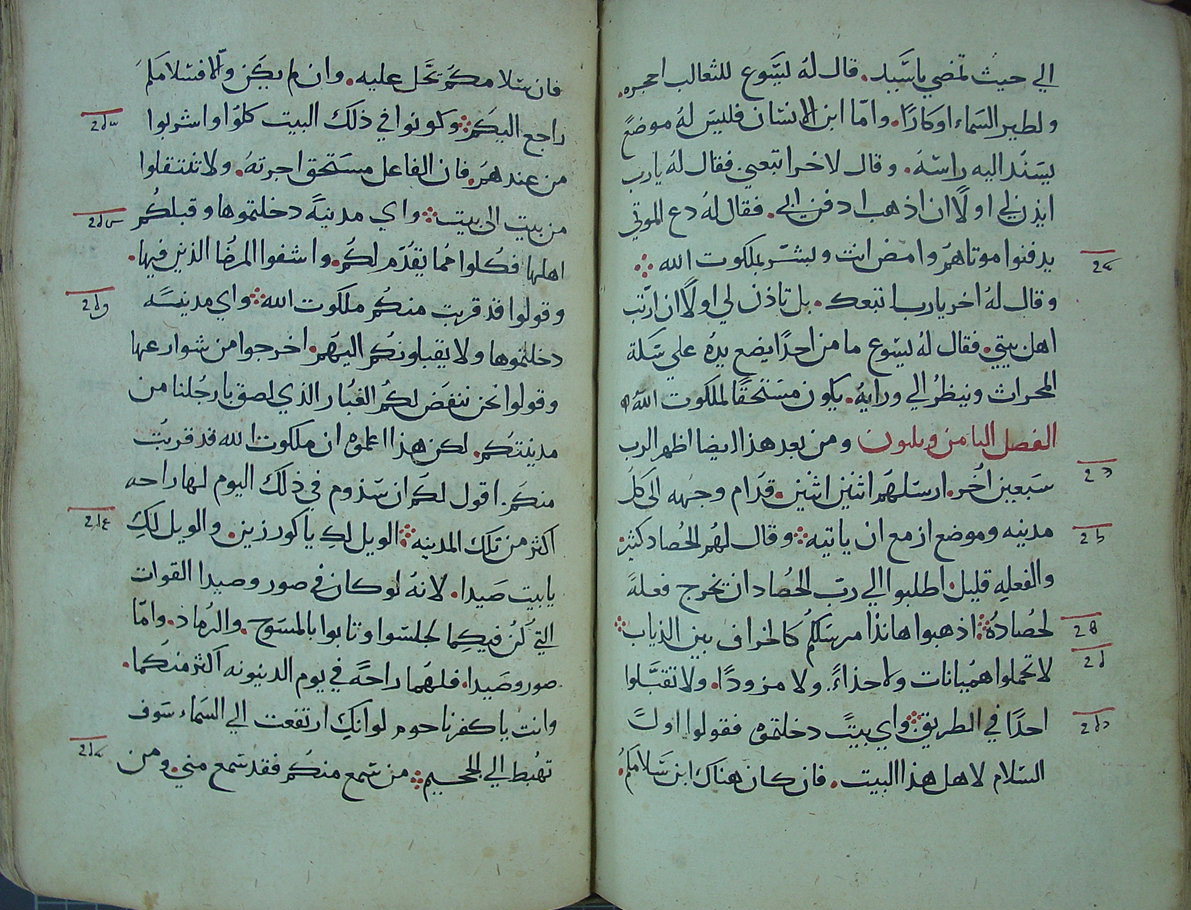 الي حيث تمضي ياسَيِد. قال لهُ يسَوع للثعالب احجره.
ولطير السَماء اوكارًا. وامّا ابن الانسَان فليسَ لهُ موضعً
يسَنُد اليه راسَهُ. وقال لاخر اتبعني فقال لهُ يارب
ايذن لي اولاً ان اذهب ادفن ابي. فقال لهُ دع الموتي
يدفنوا موتاهم وامض انت وبشر بملكوت الله
وقال لهُ اخر يارب اتبعك. بل تاذن لي اولاً ان ارتب
اهل بيتي. فقال لهُ يسَوع ما من احدًا يضع يدهُ علي سَكة
المحراث وينظرُ الي ورايهُ. يكون مسَتحقًا لملكوت الله
الفصل الثامن وثلثون ومن بعد هذا ايضا اظهر الرب
سَبعين اُخر. ارسَلهم اثنين اثنين. قدام وجهه الى كل
مدينه وموضع ازمع ان ياتيه وقال لهُم الحُصاد كثير.
والفعله قليل. اطلبوا الي ربّ الحُصاد ان تخرج فعلةً
لحُصادهُ اذهبوا هانذا مرسَلكم كالخراف بين الذياب
لا تحملوا هميانات ولاحذاءً. ولا مزودًا. ولا تقبَّلوا
احدًا في الطريق واي بيتً دخلتموه فقولوا اولاً
السَلام لاهل هذا البيت. فان كان هناك ابن سَلامكمُ
فان سَلامكم تحَل عليه. وان لم يكن والا فسَلامكم
راجع اليكم وكونوا في ذلك البيت كلوًا واشربوا
من عندهمُ. فان الفاعل مسَتحق اجرتهُ. ولا تنتقلوا
من بيت الى بيت واي مدينةً دخلتموها وقبلكُم
اهلها فكُلوا مما يقُدّم لكُم. واشفوا المرضُا الذين فيها.
وقولوا قد قربت منكُم ملكوت الله واي مدينسَه
دخلتموها ولا يقبلونكُم اليهُم. اخرجوا من شوارعها
وقولوا نحن ننفض لكُم الغبُار الذي لصق بارجُلنا من
مدينتكُم. لكن هذا اعلموه ان ملكوت الله قد قربُت
منكم. اقول لكم ان سَذوم في ذلك اليوم لها راحه
اكثر من تلك المدينه الويل لكِ ياكورزين. والويل لكِ
يابيت صَيدا. لانهُ لو كان في صور وصيدا القوات
التي كنّ فيكما لجلسَوا وتابوا بالمسَوح. والرمُاد. وامّا
صور وصَيدا. فلهُما راحةً في يوم الدينونه اكثر منكما.
وانت ياكفرناحوم لوانكِ ارتفعت الي السَماء سَوف
تهبُط الي الجحيم من سَمع منكُم فقد سَمع مني. ومن